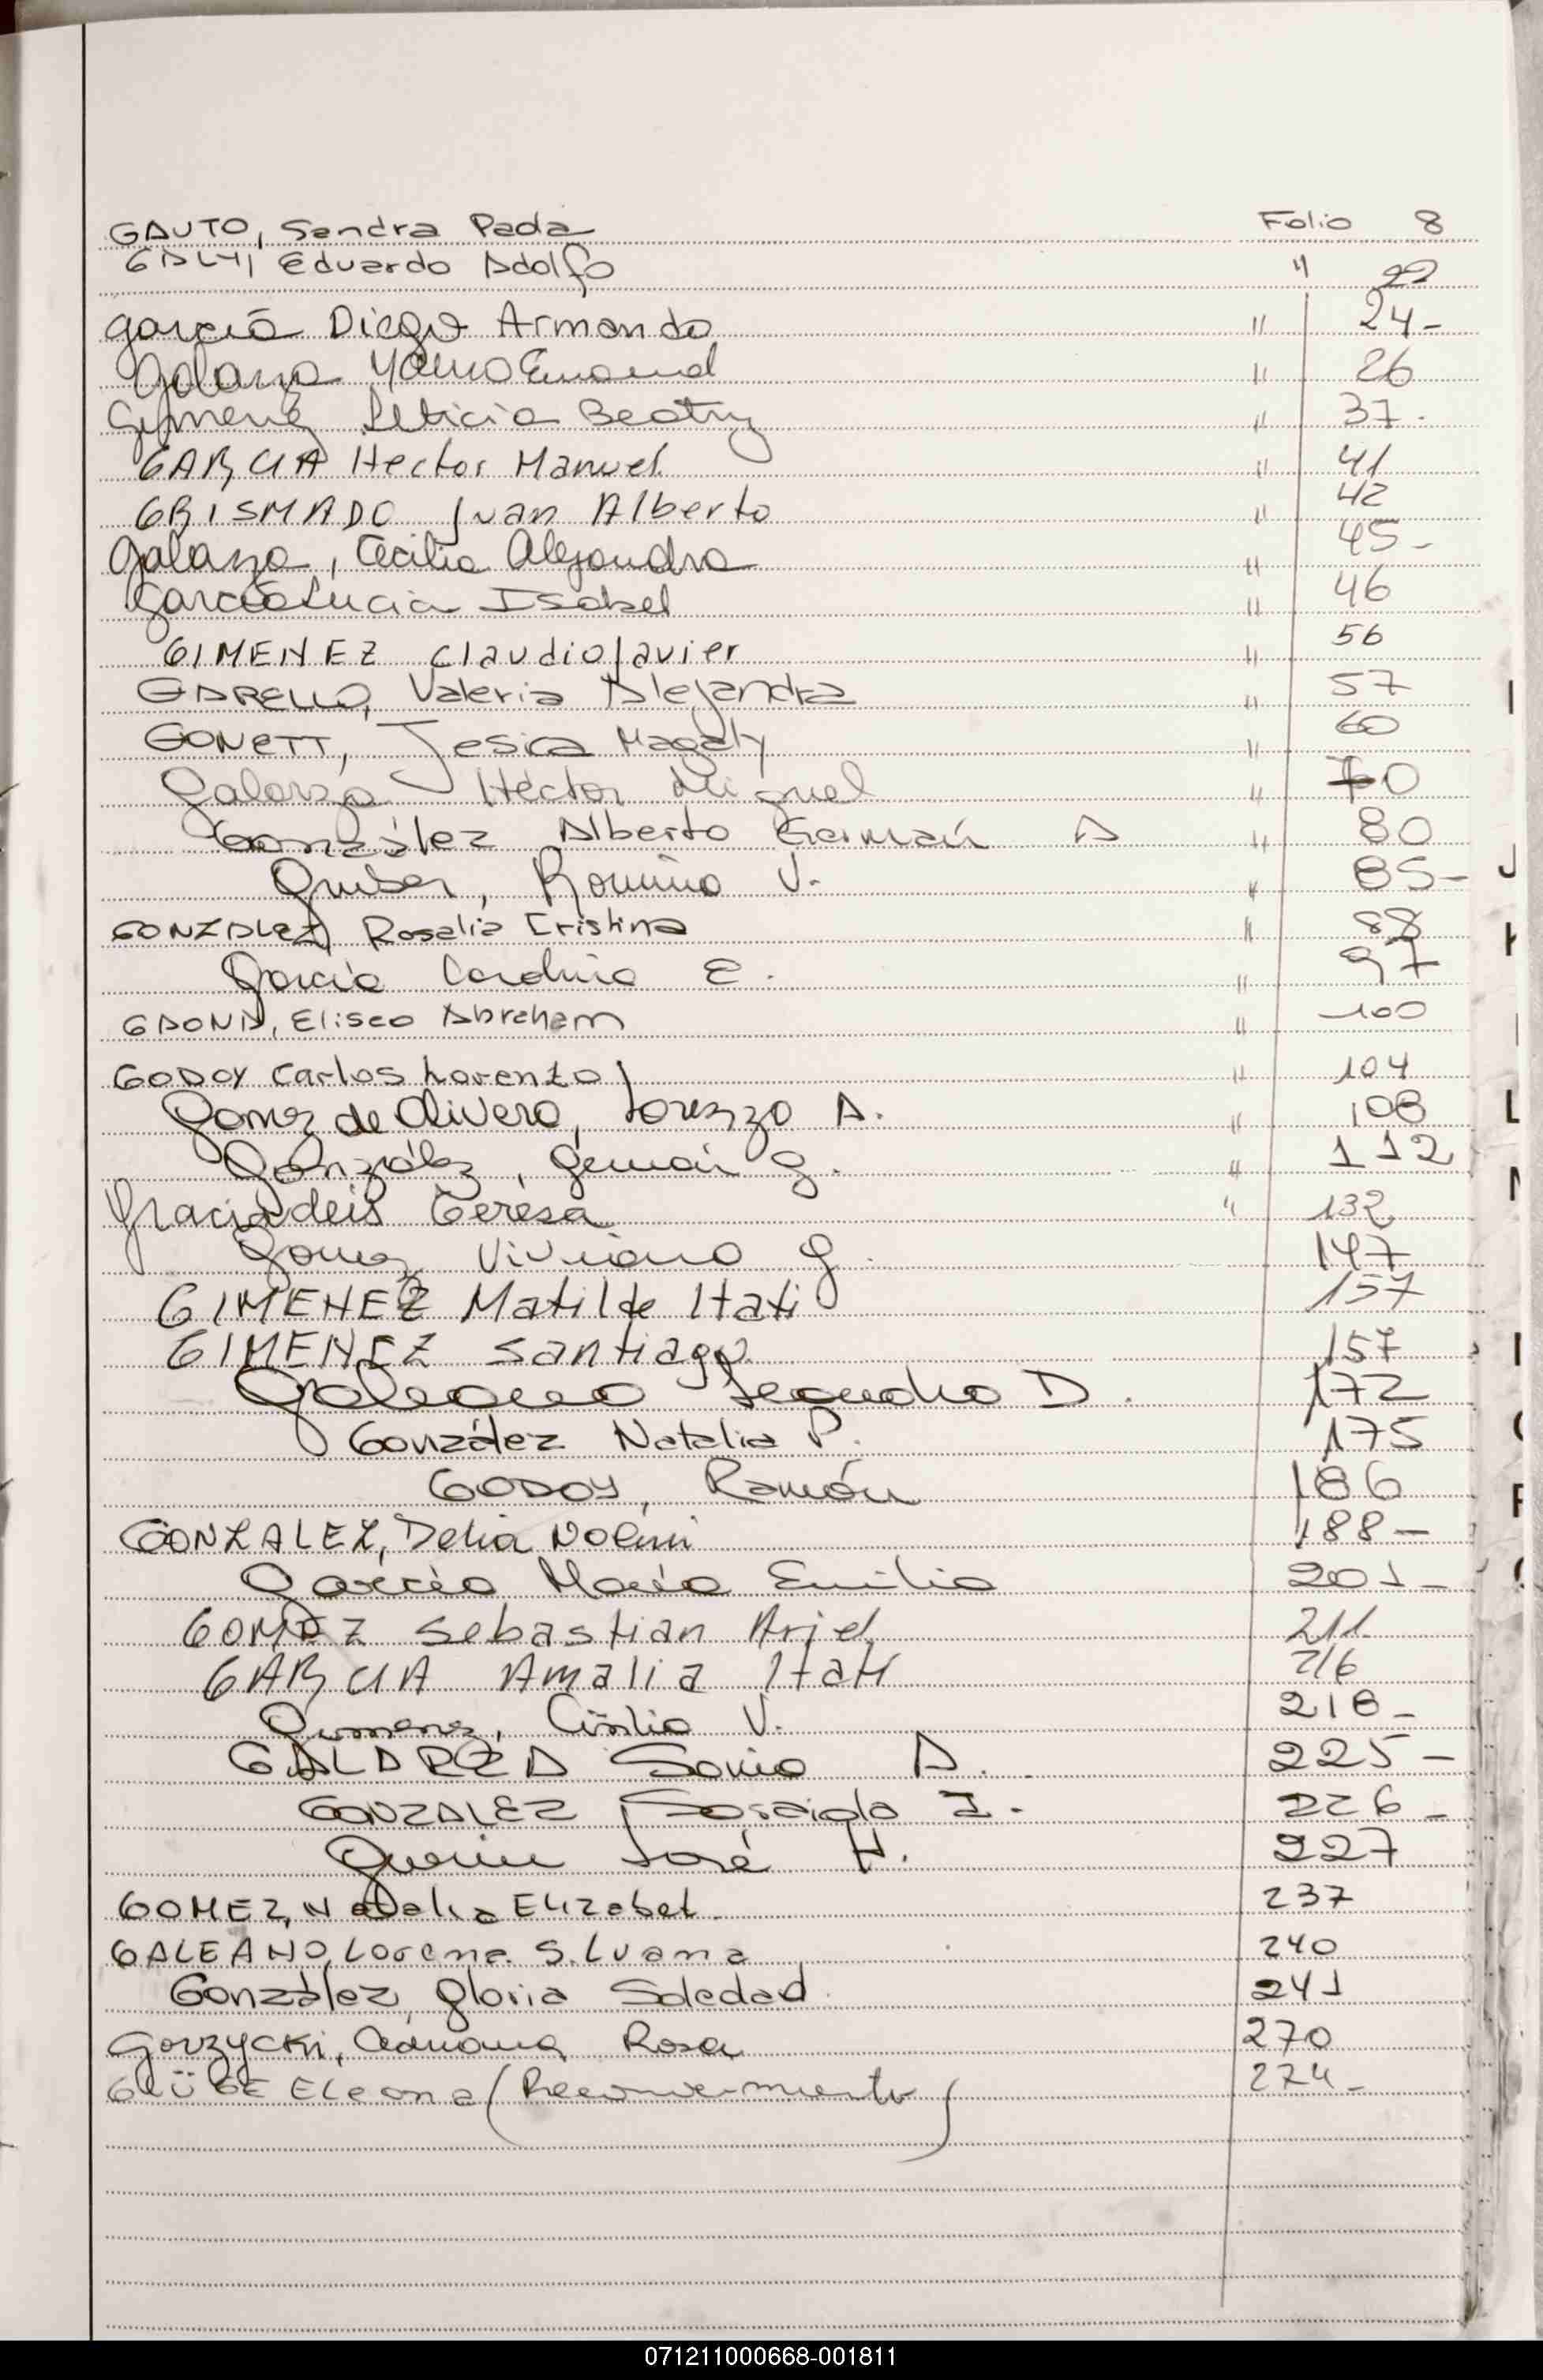 GAUTO, Sandra Paola Folio 8
GALY, Eduardo Adolfo " 22
García Diego Armando " 24-
Galarza Emanuel " 26
Gimenez Leticia Beatriz " 37-
GARCIA Hector Manuel " 41
GRISMADO Juan Alberto " 42
Galarza, Cecilia Alejandra " 45-
García Lucia Isabel " 46
GIMENEZ Claudio Javier " 56
GARELLO, Valeria Alejandra " 57
GONETT, Jesica Magaly " 60
Galarza Héctor Miguel " 70
González Alberto Germán A " 80
Gruber, Romina V. " 85-
GONZALEZ Rosalia Cristina " 88
García Carolina E. " 97
GAONA, Eliseo Abraham " 100
GODOY Carlos Lorenzo " 104
Gomez de Olivera, Lorenzo A. " 108
González, Germán G. " 112
Graciadeis Teresa " 132
Gomez Viviana G. 147
GIMENEZ Matilde Itati 157
GIMENEZ Santiago 157
Galeano Leandro D. 172
González Natalia P. 175
GODOY, Ramón 186
GONZALEZ, Delia Noemi 188-
García María Emilia 201-
GOMEZ Sebastian Ariel 211
GARCIA Amalia Itati 216
Gimenez, Cintia V. 218-
GALARZA Sonia A. 225-
GONZALEZ I. 226-
Guerin José H. 227
GOMEZ, Natalia Elizabet 237
GALEANO, Lorena Silvana 240
González, Gloria Soledad 241
Gorzycki, Adriana Rosa 270
GLÜGE Eleona (Reconocimiento) 274-
I
J
K
L
N
071211000668-001811